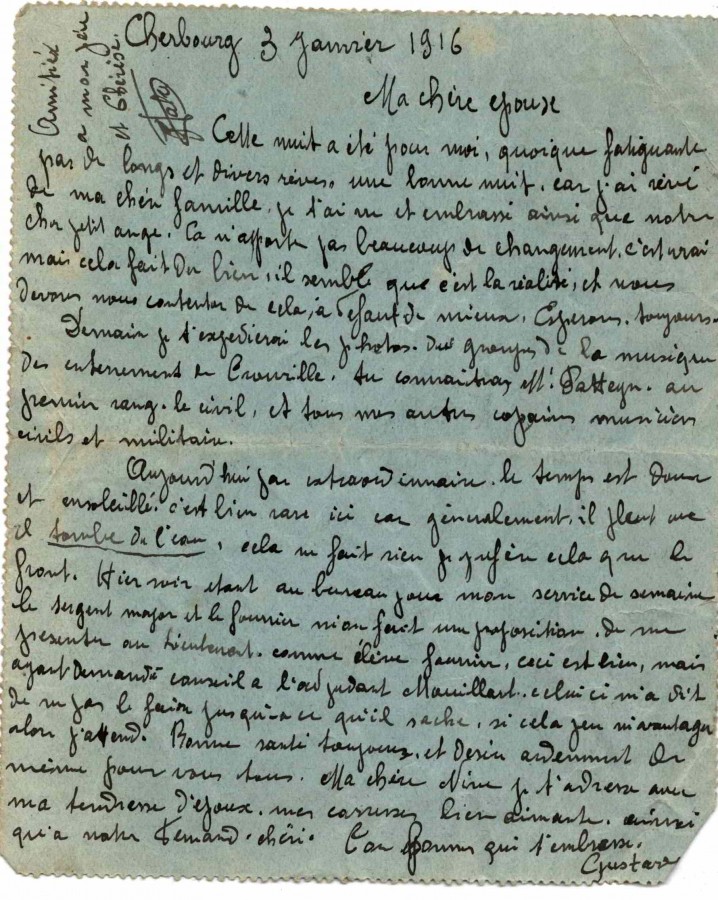 Cherbourg 3 Janvier 1916
Amitiés
a mon père
et Thérèse.
Ma chère epouse
Cette nuit a été pour moi, quoique fatiguante
par de longs et divers rêves, une bonne nuit. car j'ai rêvé
de ma chère famille, je t'ai vu et embrassé ainsi que notre
cher petit ange. Ca n'apporte pas beaucoup de changement, c'est vrai
mais cela fait du bien, il semble que c'est la réalité, et nous
devons nous contenter de cela, à défaut de mieux, Esperons. toujours.
Demain je t'expedierai les photos. des groupes de la musique
des enterrement de . tu connaitras Mr. Patteyn. au
premier rang. le civil, et tous mes autres copains musiciens
civils et militaire.
Aujourd'hui par extraordinnaire. le temps est doux
et ensoleillé. c'est bien rare ici car généralement. il pleut ou
il tombe de l'eau, cela ne fait rien je préfère cela que le
front. Hier soir etant au bureau pour mon service de semaine
le sergent major et le fourrier m'on fait une proposition. de me
presenter au lieutenant. comme élève fourrier, ceci est bien, mais
ayant demandé conseil a l'adjudant Mouillart. celui ci m'a dit
de ne pas le faire jusqu'a ce qu'il sache, si cela peu m'avantager
alors j'attend. Bonne santé toujours, et désire ardemment de
même pour vous tous. Ma chère je t'adresse avec
ma tendresse d'epoux. mes caresses bien aimante. ainsi
qu'a notre Fernand. chéri. Ton qui t'embrasse.
Gustave